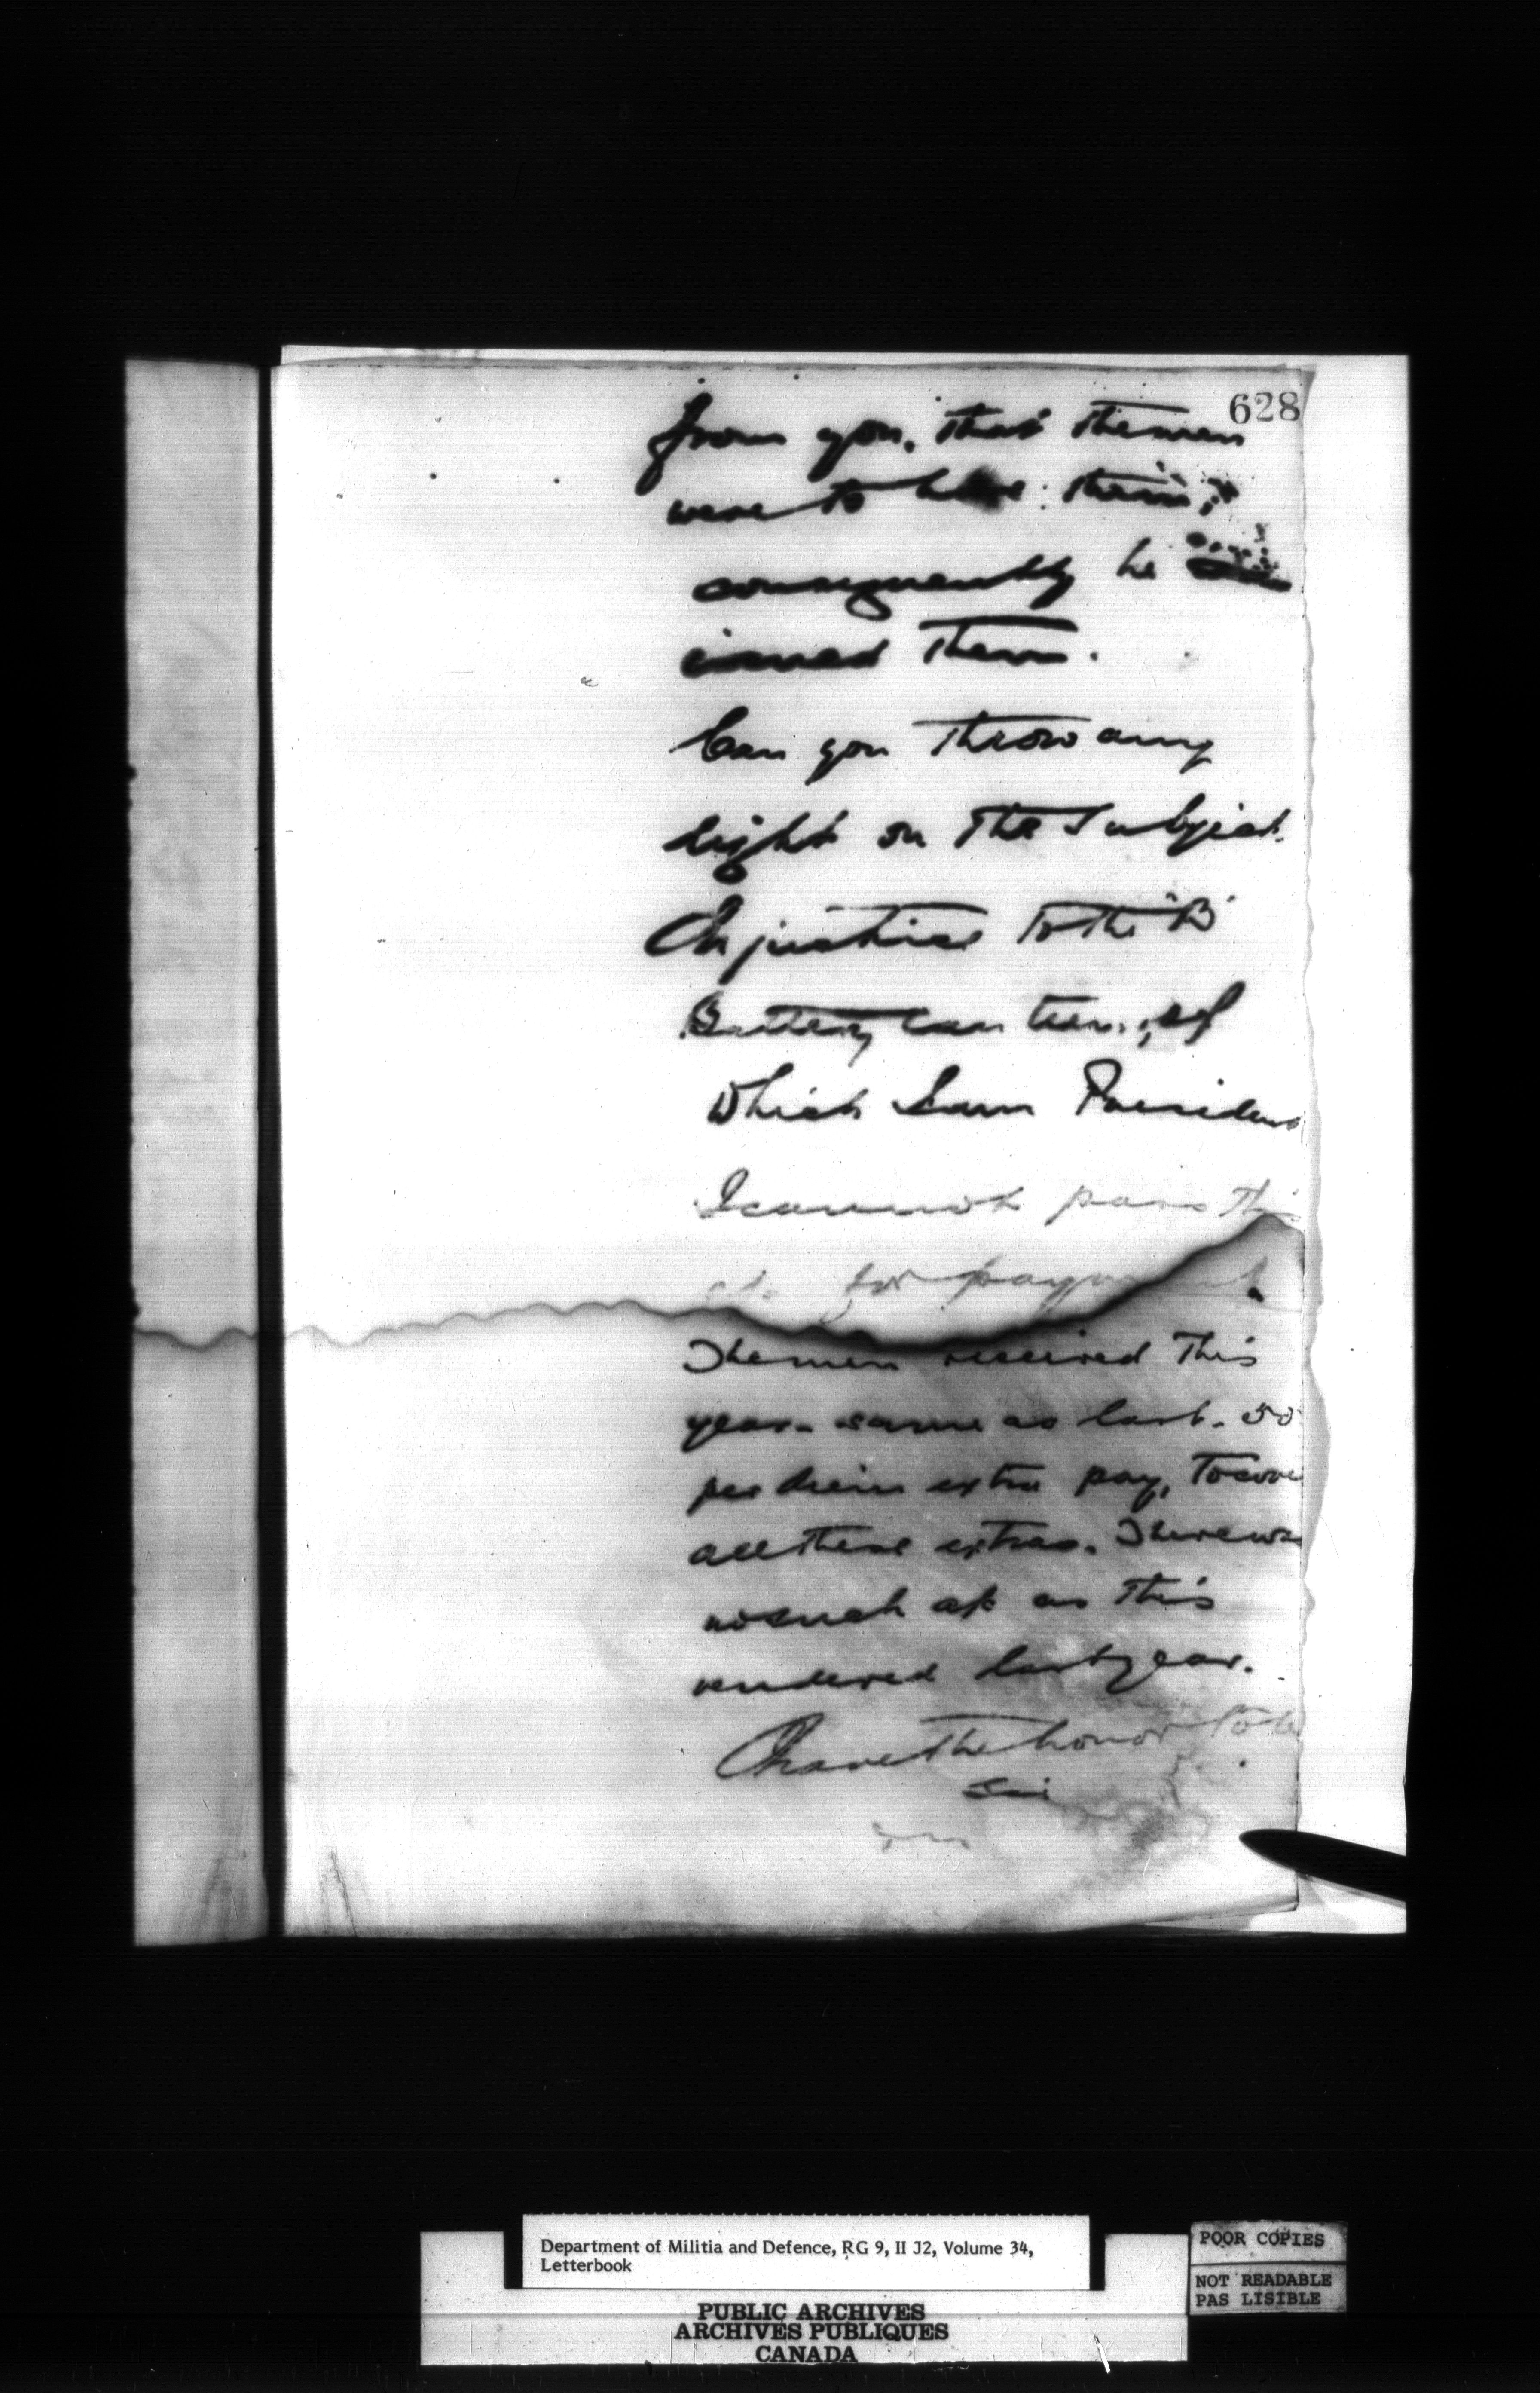 628
from you, that the men
were to have them,
consequently he
issued them.
Can you throw any
light on the subject.
In justice to the "B"
Battery Canteen, of
which I am President
I cannot pass this
a/c for payment.
The men received this
year - same as last - 50
per diem extra pay, to cove
all these extras. There was
no such a/c as this
rendered last year.
I have the honor to be
Sir
Department of Militia and Defence, RG 9, II J2, Volume 34,
Letterbook
POOR COPIES
NOT READABLE
PAS LISIBLE
PUBLIC ARCHIVES
ARCHIVES PUBLIQUES
CANADA